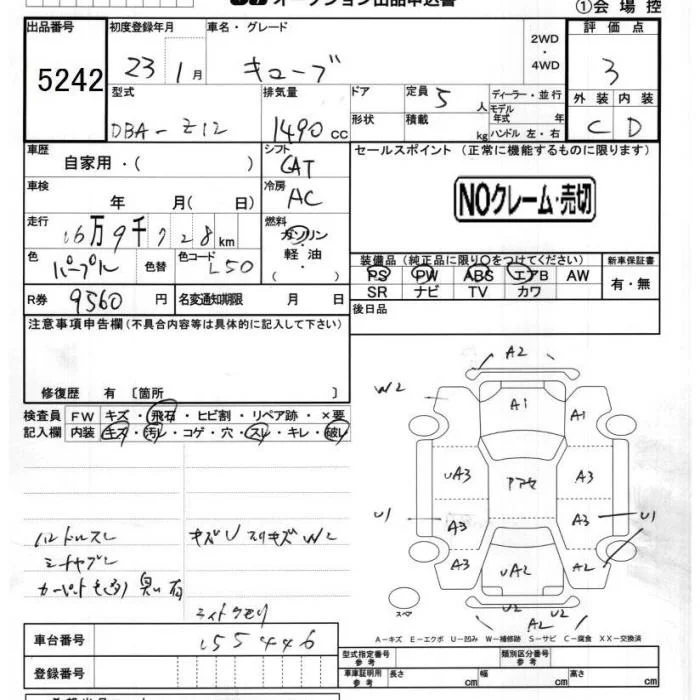 オークション出品申込書
①会場控
出品番号
5242
初度登録年月
23 1月
車名・グレード
キューブ
2WD
・
4WD
評価点
3
型式
DBA-Z12
排気量
1490cc
ドア
形状
定員 5 人
積載 kg
ディーラー・並行
モデル年式 年
ハンドル 左・右
外装 内装
C D
車歴
自家用・( )
シフト
CAT
セールスポイント(正常に機能するものに限ります)
NOクレーム・売切
車検
年 月( 日)
冷房
AC
走行
16万9千728km
燃料
ガソリン
・
軽油
( )
色
パープル
色替
色コード
L50
装備品(純正品に限り○をつけてください)
PS PW ABS エアB AW
SR ナビ TV カワ
新車保証書
有・無
R券 9560円
名変通知期限 月 日
後日品
注意事項申告欄(不具合内容等は具体的に記入して下さい)
修復歴 有〔箇所 〕
検査員記入欄
FW キズ・飛石・ヒビ割・リペア跡・×要
内装 キズ・汚レ・コゲ・穴・スレ・キレ・破レ
ハンドルスレ
シートヤブレ
カーペット
臭い有
キズU スリキズW2
A2
W2
A1
A1
UA3
A3
U1
A3
A3
U1
A3
UA2
A2
U2
U2
A2
スペア
A-キズ E-エクボ U-凹み W-補修跡 S-サビ C-腐食 XX-交換済
車台番号
155446
登録番号
型式指定番号
参考
類別区分番号
参考
車庫証明用
参考
長さ cm
幅 cm
高さ cm